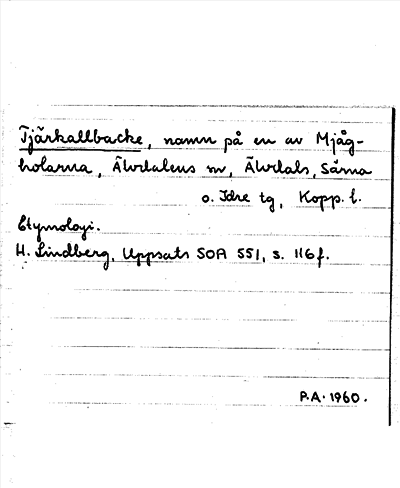 Tjärkallbacke, namn på en av Mjåg-
holarna, Älvdalens nv, Älvdals, Särna
o. Idre tg, Kopp. l.
Etymologi.
H. Lindberg, Uppsats SOA 551, s. 116 f.
P.A. 1960.